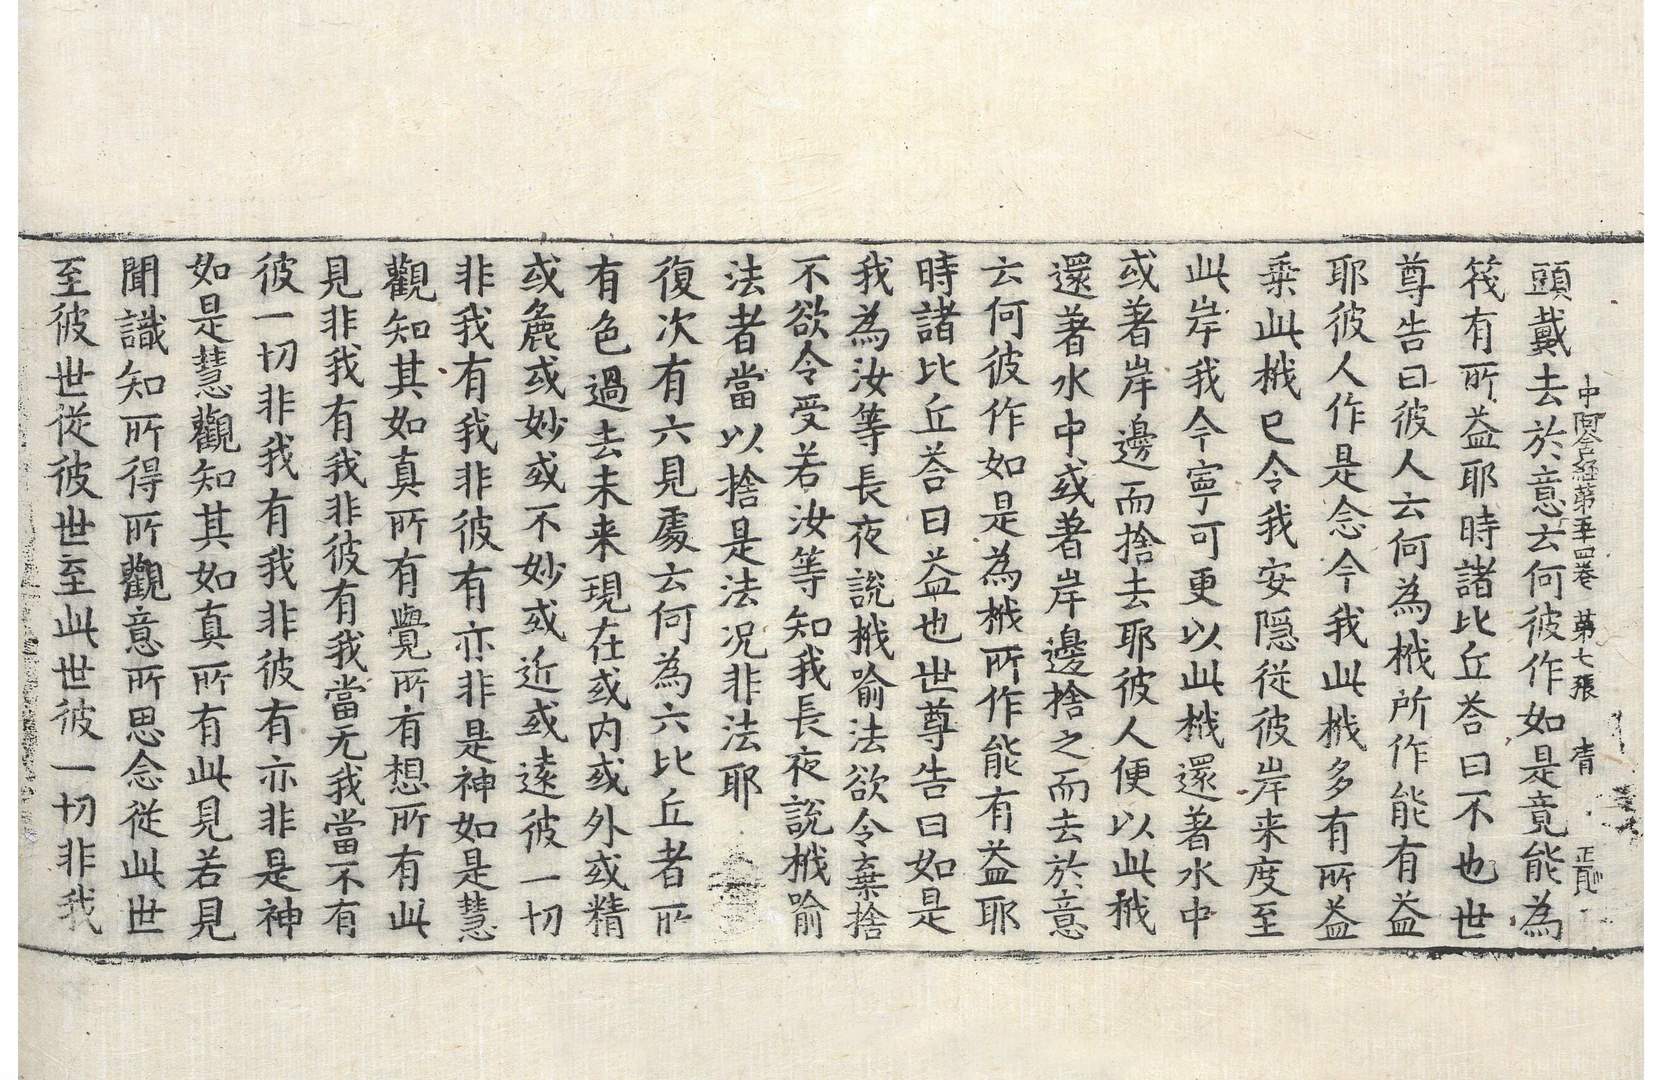 頭戴去於意云何彼作如是竟能為
筏有所益耶時諸比丘荅曰不也世
尊告曰彼人云何為栰所作能有益
耶彼人作是念今我此栰多有所益
乗此栰已令我安隱從彼岸来度至
此岸我今寧可更以此栰還著水中
或著岸邊而捨去耶彼人便以此栰
還著水中或著岸邊捨之而去於意
云何彼作如是為栰所作能有益耶
時諸比丘荅曰益也世尊告曰如是
我為汝等長夜說栰喻法欲令棄捨
不欲令受若汝等知我長夜說栰喻
法者當以捨是法况非法耶
復次有六見處云何為六比丘者所
有色過去未来現在或内或外或精
或麁或妙或不妙或近或遠彼一切
非我有我非彼有亦非是神如是慧
觀知其如真所有覺所有想所有此
見非我有我非彼有我當无我當不有
彼一切非我有我非彼有亦非是神
如是慧觀知其如真所有此見若見
聞識知所得所觀意所思念從此世
至彼世從彼世至此世彼一切非我
中阿含經第五十四卷 第七張 青